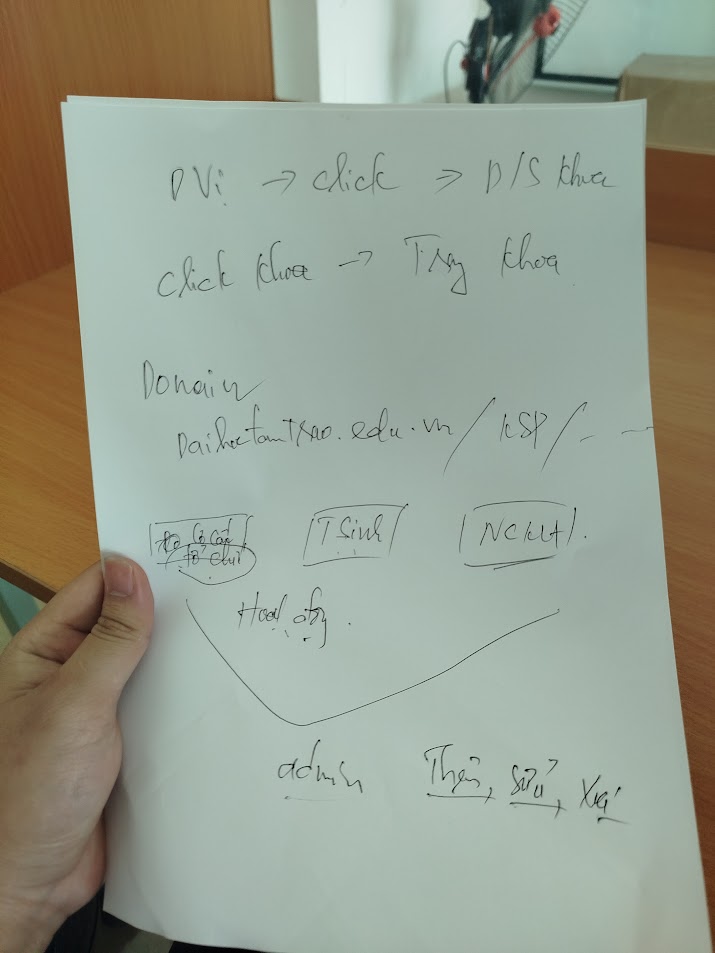 DVị → click → D/S khoa
click khoa → Trag khoa
Domain
DaihocTanTrao.edu.vn / KSP / - -
Cơ cấu tổ chức TSinh NCKH
Hoạt động.
admin Thêm, sửa, xoá